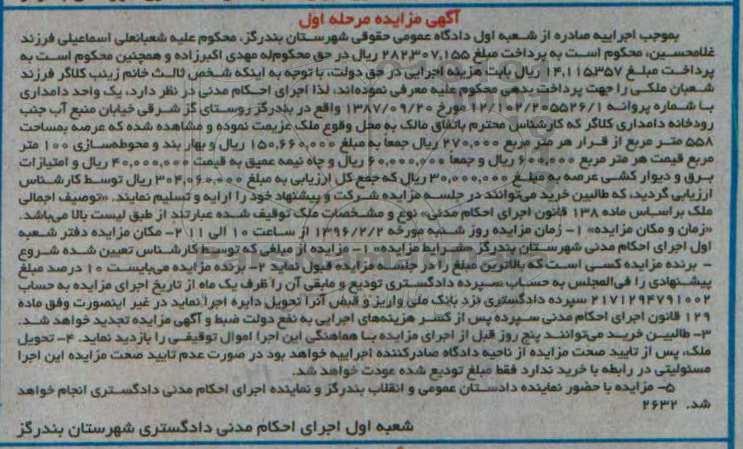 آگهی مزایده مرحله اول
بموجب اجراییه صادره از شعبه اول دادگاه عمومی حقوقی شهرستان بندرگز، محکوم علیه شعبانعلی اسماعیلی فرزند
غلامحسین، محکوم است به پرداخت مبلغ ۲۸۲,۳۰۷,۱۵۵ ریال در حق محکوم‌له مهدی اکبرزاده و همچنین محکوم است به
پرداخت مبلغ ۱۴,۱۱۵,۳۵۷ ریال بابت هزینه اجرایی در حق دولت، با توجه به اینکه شخص ثالث خانم زینب کلاگر فرزند
شعبان ملکی را جهت پرداخت بدهی محکوم علیه معرفی نموده‌اند، لذا اجرای احکام مدنی در نظر دارد، یک واحد دامداری
با شماره پروانه ۱۲/۱۰۲/۲۰۵۵۲۶/۱ مورخ ۱۳۸۷/۰۹/۲۰ واقع در بندرگز روستای گز شرقی خیابان منبع آب جنب
رودخانه دامداری کلاگر که کارشناس محترم باتفاق مالک به محل وقوع ملک عزیمت نموده و مشاهده شده که عرصه بمساحت
۵۵۸ متر مربع از قرار هر متر مربع ۲۷۰,۰۰۰ ریال جمعا به مبلغ ۱۵۰,۶۶۰,۰۰۰ ریال و بهار بند و محوطه‌سازی ۱۰۰ متر
مربع قیمت هر متر مربع ۶۰۰,۰۰۰ ریال و جمعا ۶۰,۰۰۰,۰۰۰ ریال و چاه نیمه عمیق به قیمت ۴۰,۰۰۰,۰۰۰ ریال و امتیازات
برق و دیوار کشی عرصه به مبلغ ۳۰,۰۰۰,۰۰۰ ریال که جمع کل ارزیابی به مبلغ ۳۰۴,۰۶۰,۰۰۰ ریال توسط کارشناس
ارزیابی گردید، که طالبین خرید می‌توانند در جلسه مزایده شرکت و پیشنهاد خود را ارایه و تسلیم نمایند. «توصیف اجمالی
ملک براساس ماده ۱۳۸ قانون اجرای احکام مدنی» نوع و مشخصات ملک توقیف شده عبارتند از طبق لیست بالا می‌باشد.
«زمان و مکان مزایده» ۱- زمان مزایده روز شنبه مورخه ۱۳۹۶/۲/۲ از ساعت ۱۰ الی ۱۱ ۲- مکان مزایده دفتر شعبه
اول اجرای احکام مدنی شهرستان بندرگز «شرایط مزایده» ۱- مزایده از مبلغی که توسط کارشناس تعیین شده شروع
- برنده مزایده کسی است که بالاترین مبلغ را در جلسه مزایده قبول نماید ۲- برنده مزایده می‌بایست ۱۰ درصد مبلغ
پیشنهادی را فی‌المجلس به حساب سپرده دادگستری تودیع و مابقی آن را ظرف یک ماه از تاریخ اجرای مزایده به حساب
۲۱۷۱۲۹۴۷۹۱۰۰۲ سپرده دادگستری نزد بانک ملی واریز و قبض آنرا تحویل دایره اجرا نماید در غیر اینصورت وفق ماده
۱۲۹ قانون اجرای احکام مدنی سپرده پس از کسر هزینه‌های اجرایی به نفع دولت ضبط و آگهی مزایده تجدید خواهد شد.
۳- طالبین خرید می‌توانند پنج روز قبل از اجرای مزایده با هماهنگی این اجرا اموال توقیفی را بازدید نماید. ۴- تحویل
ملک، پس از تایید صحت مزایده از ناحیه دادگاه صادرکننده اجراییه خواهد بود در صورت عدم تایید صحت مزایده این اجرا
مسئولیتی در رابطه با خرید ندارد فقط مبلغ تودیع شده عودت خواهد شد.
۵- مزایده با حضور نماینده دادستان عمومی و انقلاب بندرگز و نماینده اجرای احکام مدنی دادگستری انجام خواهد
شد. ۲۶۳۲
شعبه اول اجرای احکام مدنی دادگستری شهرستان بندرگز